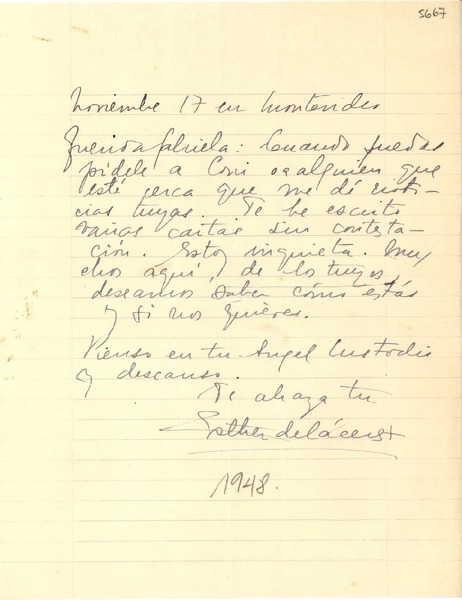 5667
Noviembre 17 en Montevideo
Querida Gabriela: Cuando puedas
pídele a Coni o a alguien que
esté cerca que me dé noti-
cias tuyas. Te he escrito
varias cartas sin contesta-
ción. Estoy inquieta. Mu-
chos aquí, de los tuyos,
deseamos saber cómo estás
y si nos quieres.
Pienso en tu Angel Custodio
y descanso.
Te abraza tu
Esther de Cáceres
1948.